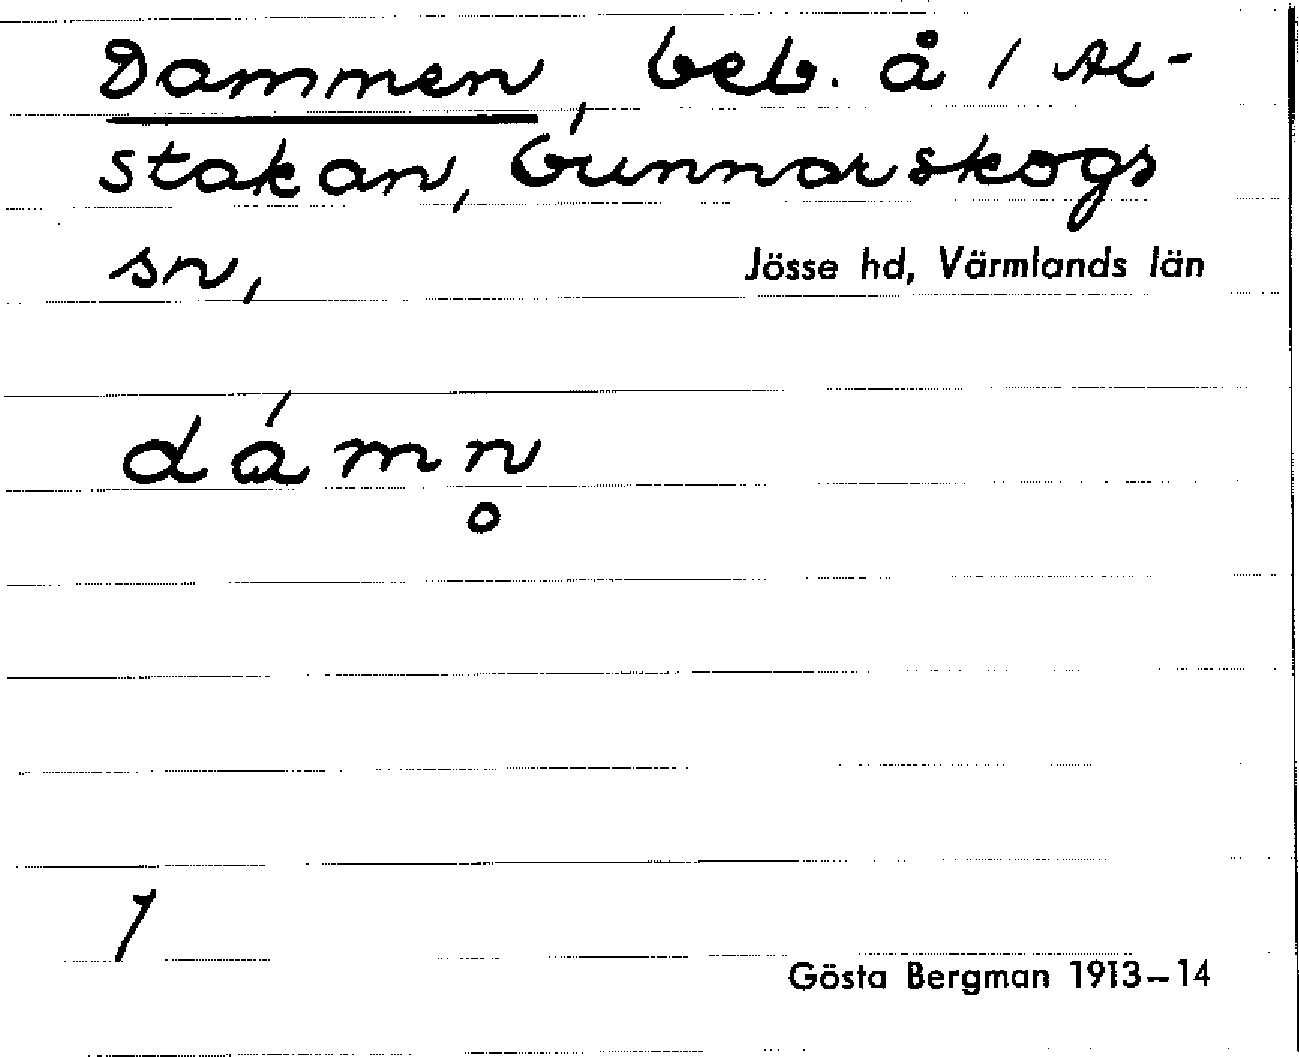 Dammen, beb. å 1 Al-
stakan, Gunnarskogs
sn, Jösse hd, Värmlands län
dámn̥
1
Gösta Bergman 1913–14